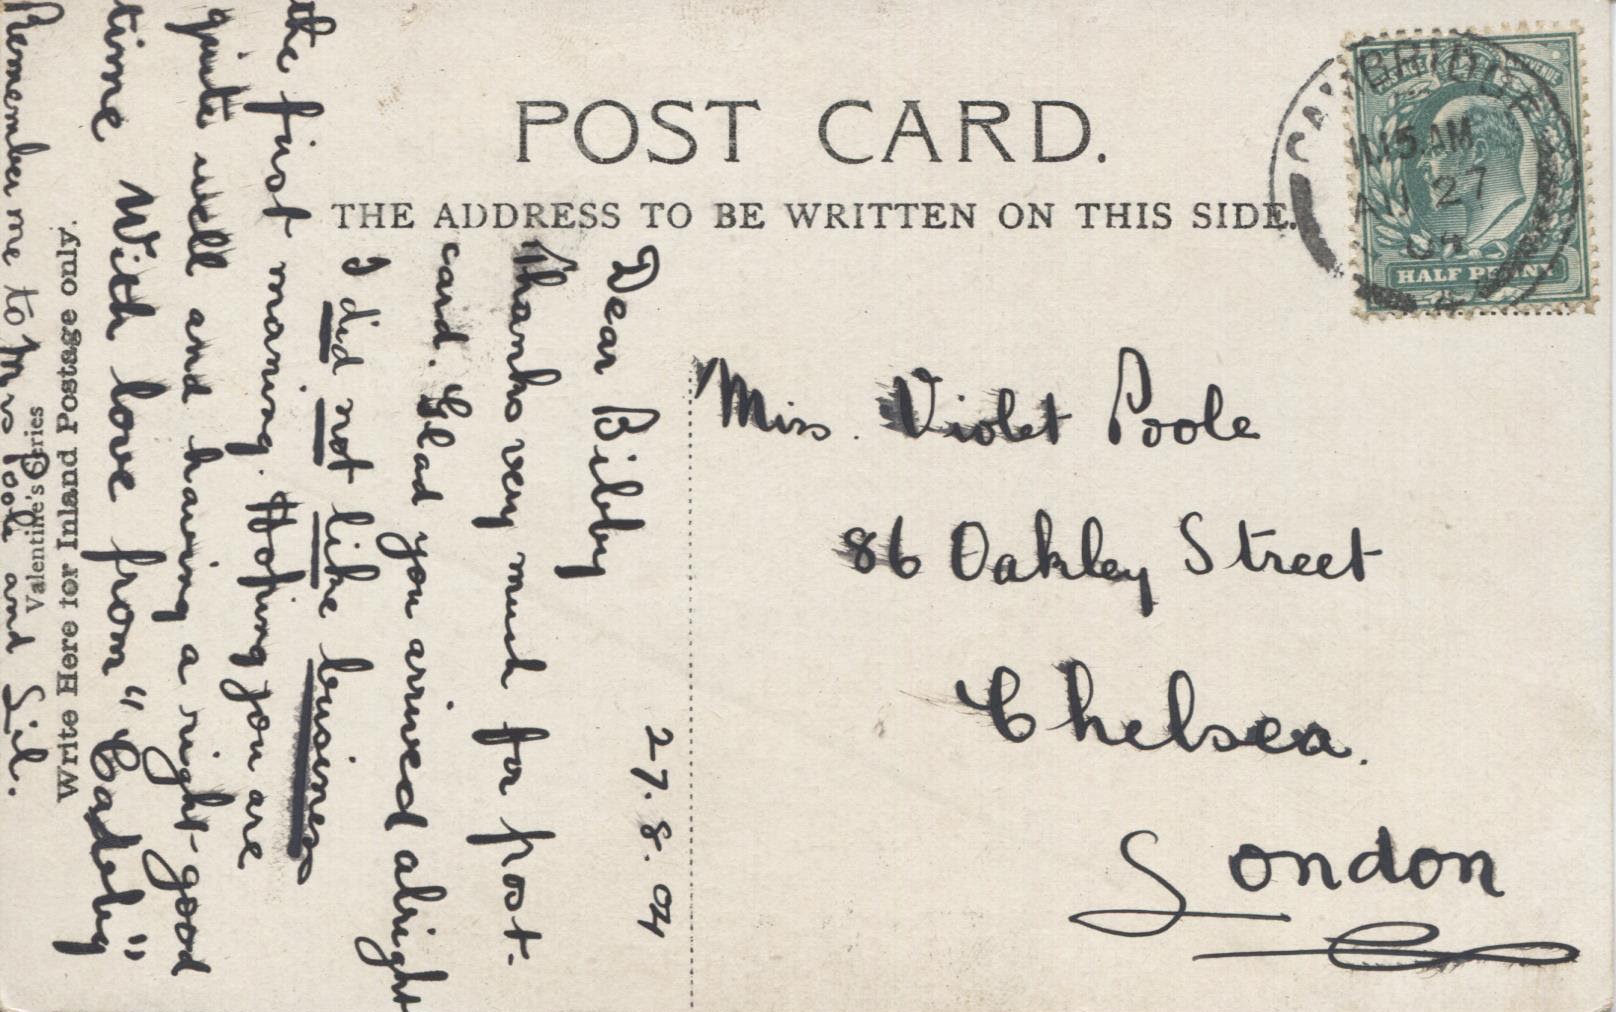 POST CARD.
THE ADDRESS TO BE WRITTEN ON THIS SIDE.
CAMBRIDGE
5 AM
AU 27
04
HALF PENNY
Miss. Violet Poole
86 Oakley Street
Chelsea.
London
27.8.04
Dear Bibby
Thanks very much for post-
card. Glad you arrived alright
I did not like business
the first morning. Hoping you are
quite well and having a right-good
time With love from "Cadeby"
Remember me to Mrs Poole and Sil.
Write Here for Inland Postage only.
Valentine's Series